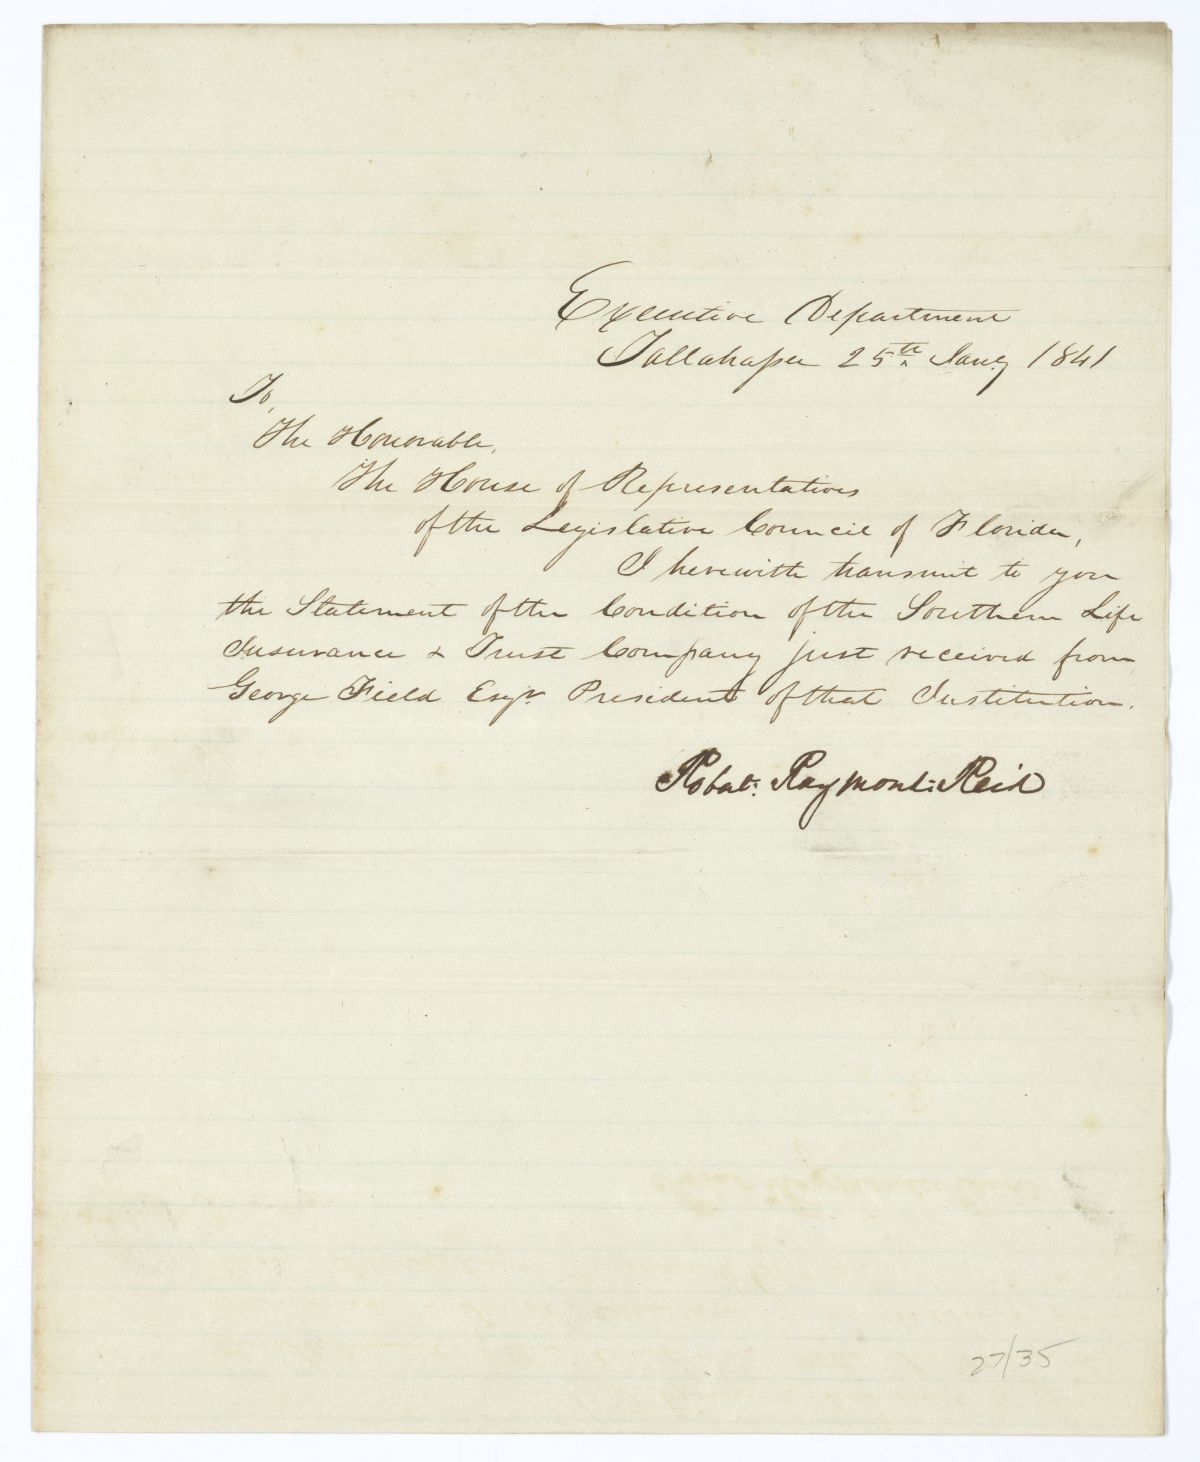 Executive Department
Tallahassee 25th Jany 1841
To,
The Honorable,
The House of Representatives
of the Legislative Council of Florida,
I herewith transmit to you
the Statement of the Condition of the Southern Life
Insurance & Trust Company just received from
George Field Esqr. President of that Institution.
Robert: Raymond: Reid
27/35